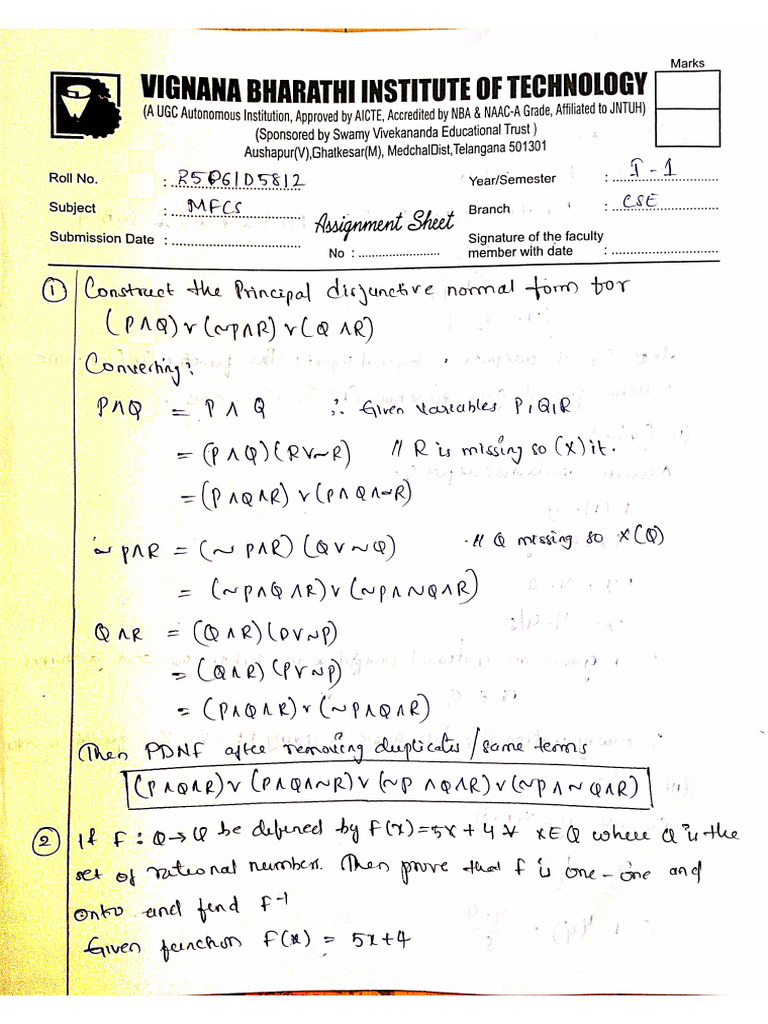 Marks
VIGNANA BHARATHI INSTITUTE OF TECHNOLOGY
(A UGC Autonomous Institution, Approved by AICTE, Accredited by NBA & NAAC-A Grade, Affiliated to JNTUH)
(Sponsored by Swamy Vivekananda Educational Trust )
Aushapur(V),Ghatkesar(M), MedchalDist,Telangana 501301
Roll No. : R5P61D5812 Year/Semester : I-1
Subject : MFCS Assignment Sheet Branch : CSE
Submission Date : No : Signature of the faculty member with date :
① Construct the Principal disjunctive normal form for
(P∧Q)∨(~P∧R)∨(Q∧R)
Converting:
P∧Q = P∧Q ∴ Given variables P,Q,R
= (P∧Q)(R∨~R) // R is missing so (x) it.
= (P∧Q∧R)∨(P∧Q∧~R)
~P∧R = (~P∧R)(Q∨~Q) // Q missing so x(Q)
= (~P∧Q∧R)∨(~P∧~Q∧R)
Q∧R = (Q∧R)(P∨~P)
= (Q∧R)(P∨~P)
= (P∧Q∧R)∨(~P∧Q∧R)
Then PDNF after removing duplicates/same terms
(P∧Q∧R)∨(P∧Q∧~R)∨(~P∧Q∧R)∨(~P∧~Q∧R)
② If f : Q→Q be defined by f(x)=5x+4 ∀ x∈Q where Q is the
set of rational number. Then prove that f is one-one and
onto and find f⁻¹
Given function f(x) = 5x+4